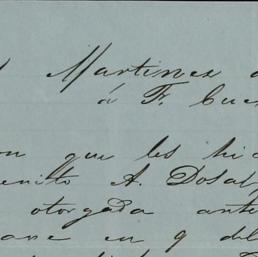 Martinez
á F. Cue
que les hi
enito A. Dosal
otorgada ante
en 9 del